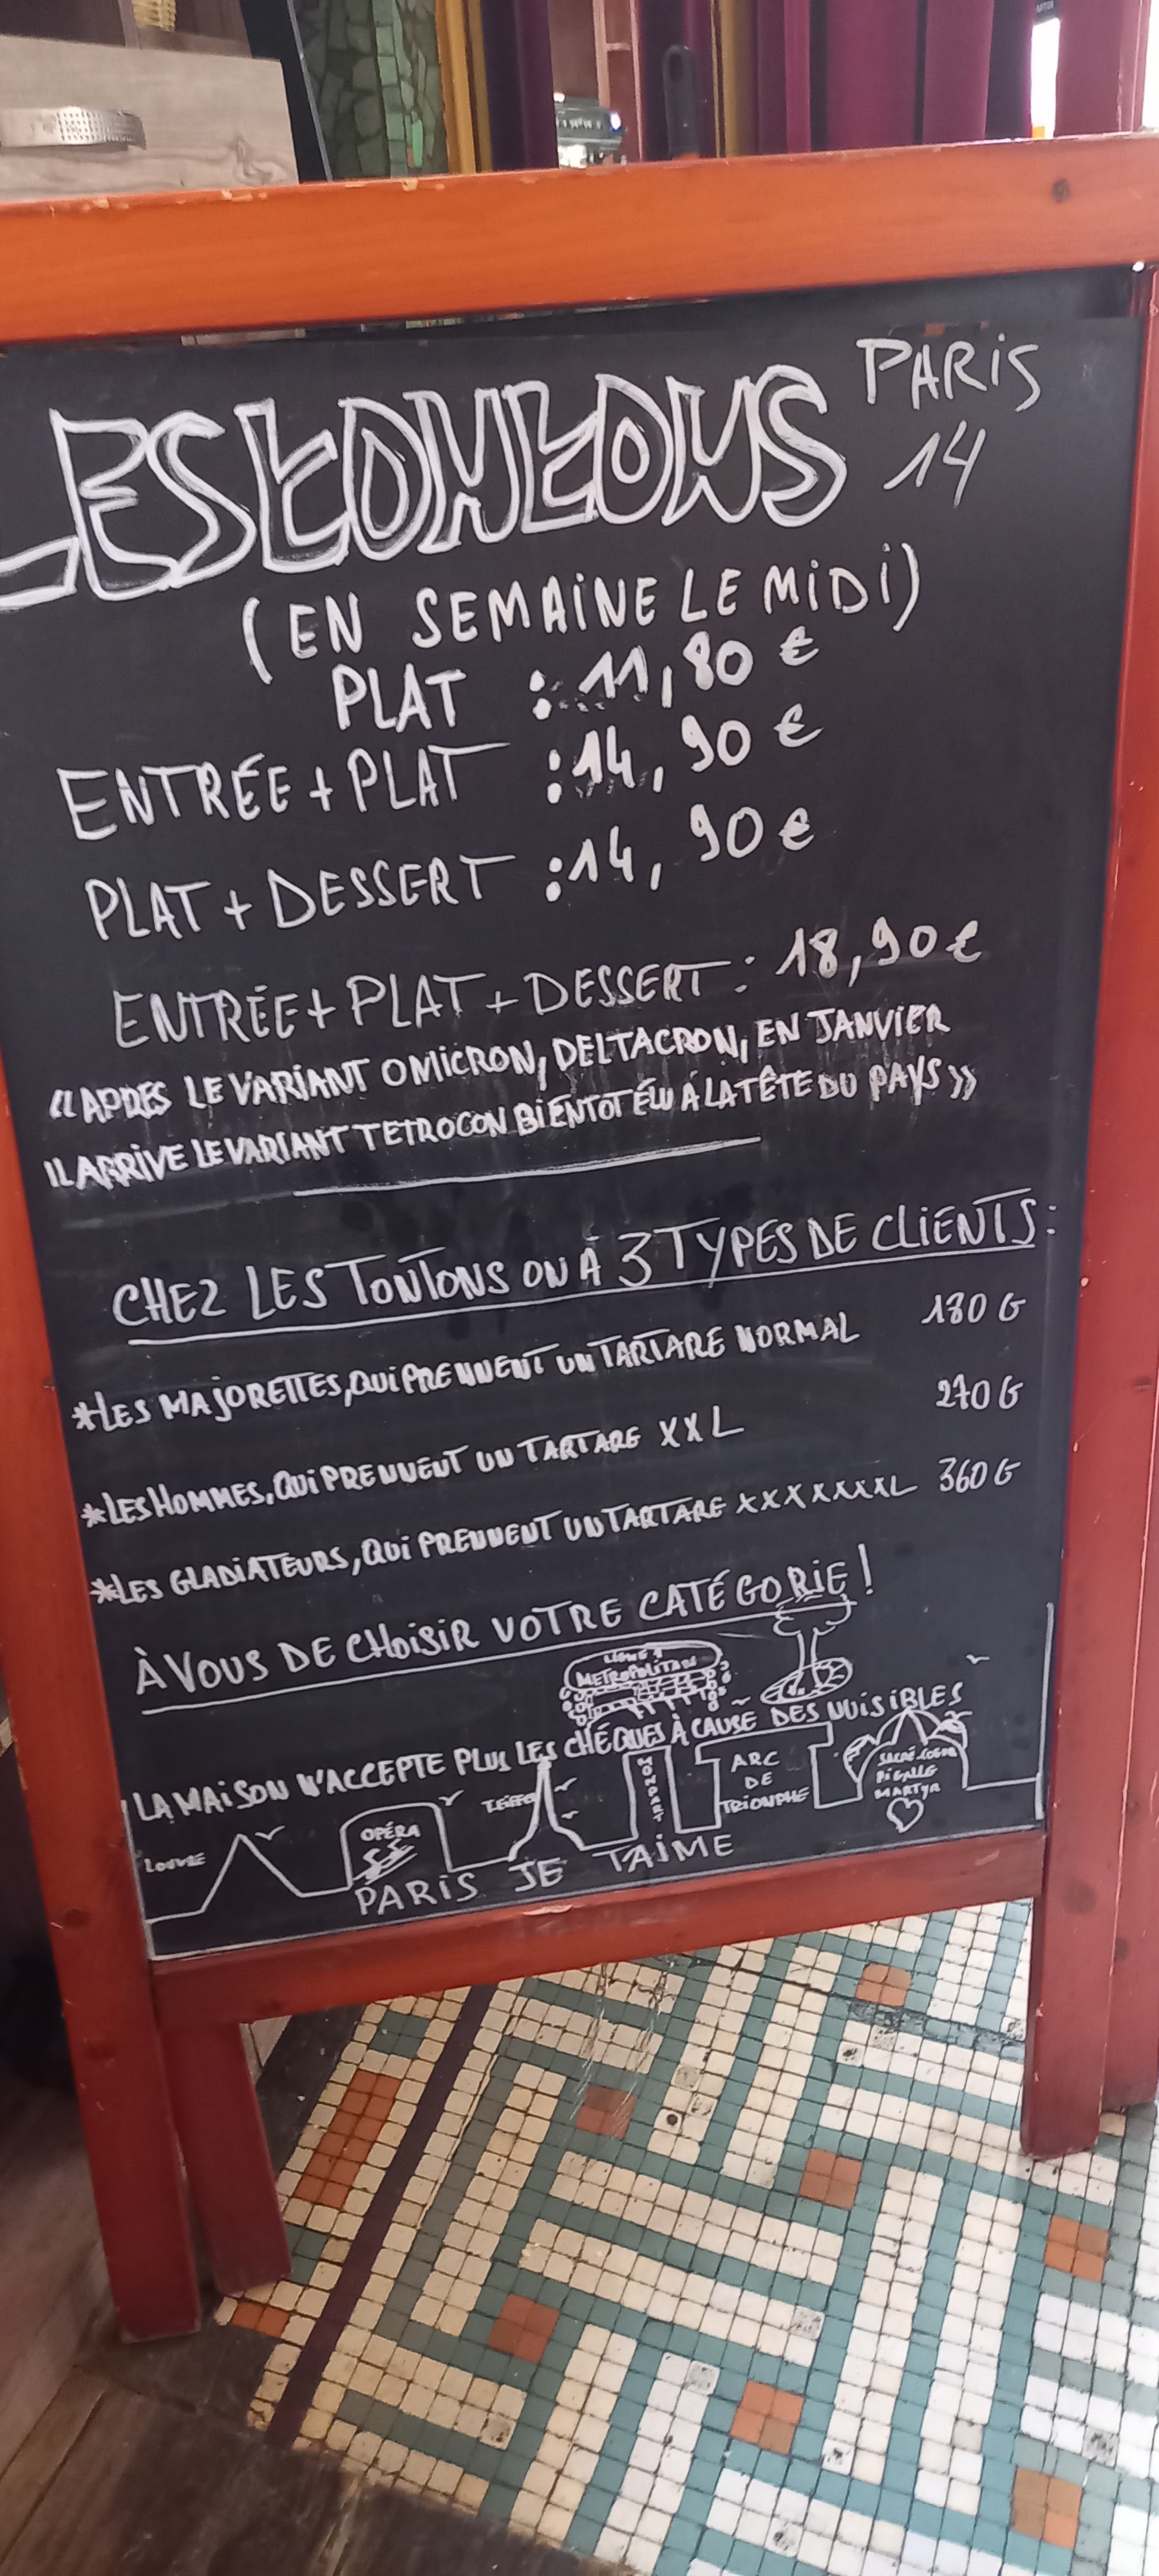 LES TONTONS PARIS
14
(EN SEMAINE LE MIDI)
PLAT : 11,80 €
ENTRÉE + PLAT : 14,90 €
PLAT + DESSERT : 14,90 €
ENTRÉE + PLAT + DESSERT : 18,90 €
«APRES LE VARIANT OMICRON, DELTACRON, EN JANVIER
IL ARRIVE LE VARIANT TETROCON BIENTOT ÉLU À LA TÊTE DU PAYS»
CHEZ LES TONTONS ON À 3 TYPES DE CLIENTS:
*LES MAJORETTES, QUI PRENNENT UN TARTARE NORMAL 180 G
*LES HOMMES, QUI PRENNENT UN TARTARE XXL 270 G
*LES GLADIATEURS, QUI PRENNENT UN TARTARE XXXXXXXL 360 G
À VOUS DE CHOISIR VOTRE CATÉGORIE!
LIGNE
METROPOLITAIN
LA MAISON N'ACCEPTE PLUS LES CHÉQUES À CAUSE DES NUISIBLES
LOUVRE
OPÉRA
T.EIFFEL
MONPART
ARC
DE
TRIONPHE
SACRÉ-COEUR
PIGALLE
MARTYR
PARIS JE TAIME